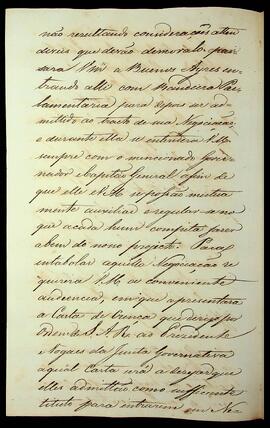 não resultando considerações aten
diveis que devão demoralo, pas
sará VM a Buenos Ayres en
trando alle com Bandeira Par
lamentaria para depois ser ad
mittido ao tracto de sua Negociação
e durante ella se entenderá VM
sempre com o mencionado Gover
nador e Capitão General afim de
que elle e VM se possão mutua
mente auxiliar e regular-se no
que a cada hum competir fazer
a bem do nosso projecto. Para
entabolar aquella Negociação re
quererá VM a conveniente
audiencia, em que apresentará
a Carta de Crença que dirijo por
Ordem de S. A. R. ao Prezidente
e Vogaes da Junta Governativa
a qual Carta será de esperar que
elles admittão como sufficiente
titulo para entrarem em Ne